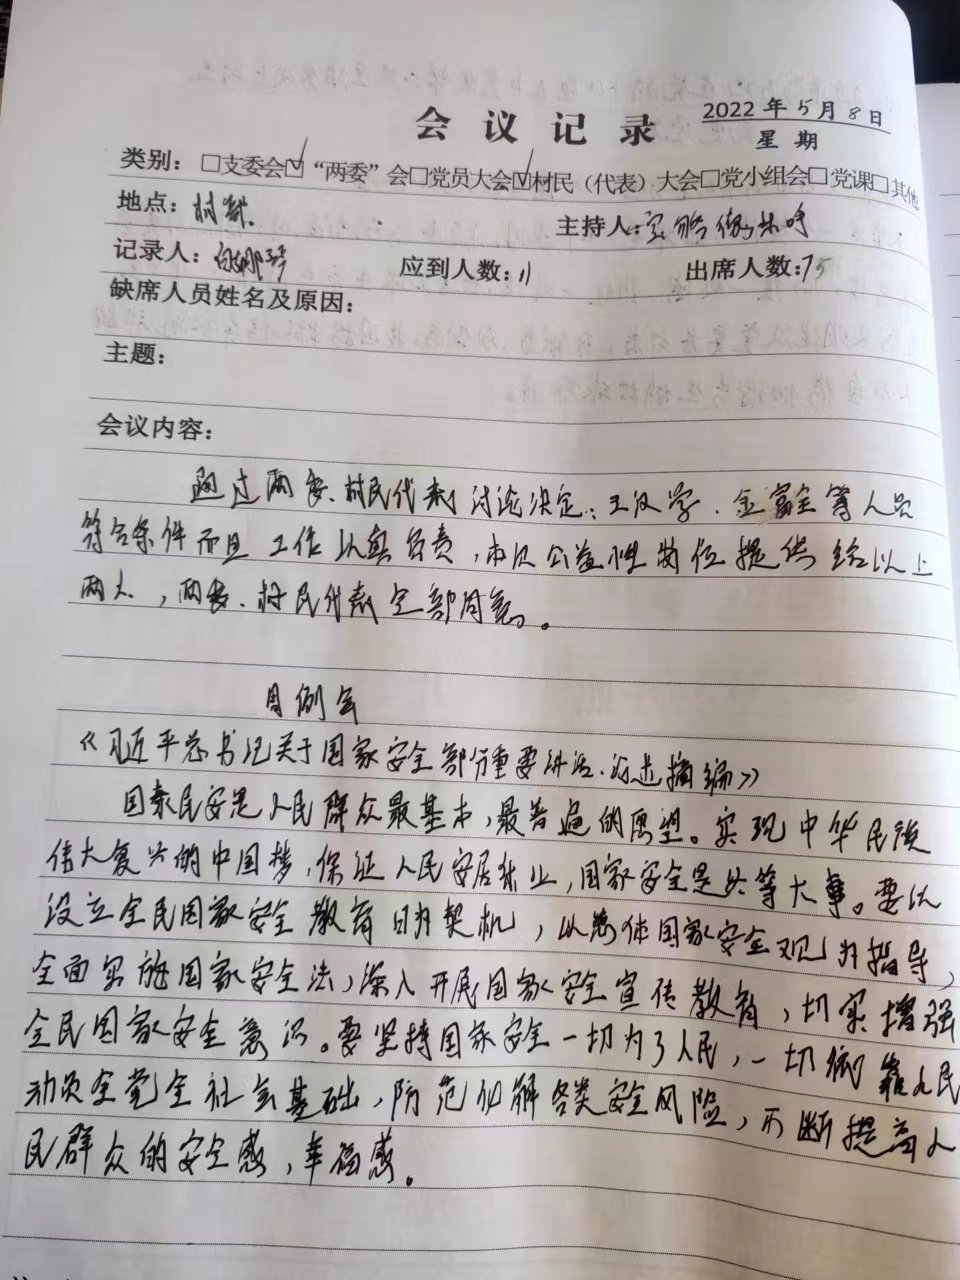 会议记录
2022年5月8日
星期
类别：□支委会☑“两委”会□党员大会☑村民（代表）大会□党小组会□党课□其他
地点：村部 主持人：
记录人： 应到人数：11 出席人数：75
缺席人员姓名及原因：
主题：
会议内容：
通过两委、村民代表讨论决定：王汉学、金富全等人员
符合条件而且工作认真负责，本次公益性岗位提供给以上
两人，两委、村民代表全部同意。
周例会
《习近平总书记关于国家安全部分重要讲话、论述摘编》
国泰民安是人民群众最基本，最普遍的愿望。实现中华民族
伟大复兴的中国梦，保证人民安居乐业，国家安全是头等大事。要以
设立全民国家安全教育日为契机，以总体国家安全观为指导，
全面实施国家安全法，深入开展国家安全宣传教育，切实增强
全民国家安全意识。要坚持国家安全一切为了人民，一切依靠人民
动员全党全社会基础，防范化解各类安全风险，不断提高人
民群众的安全感，幸福感。